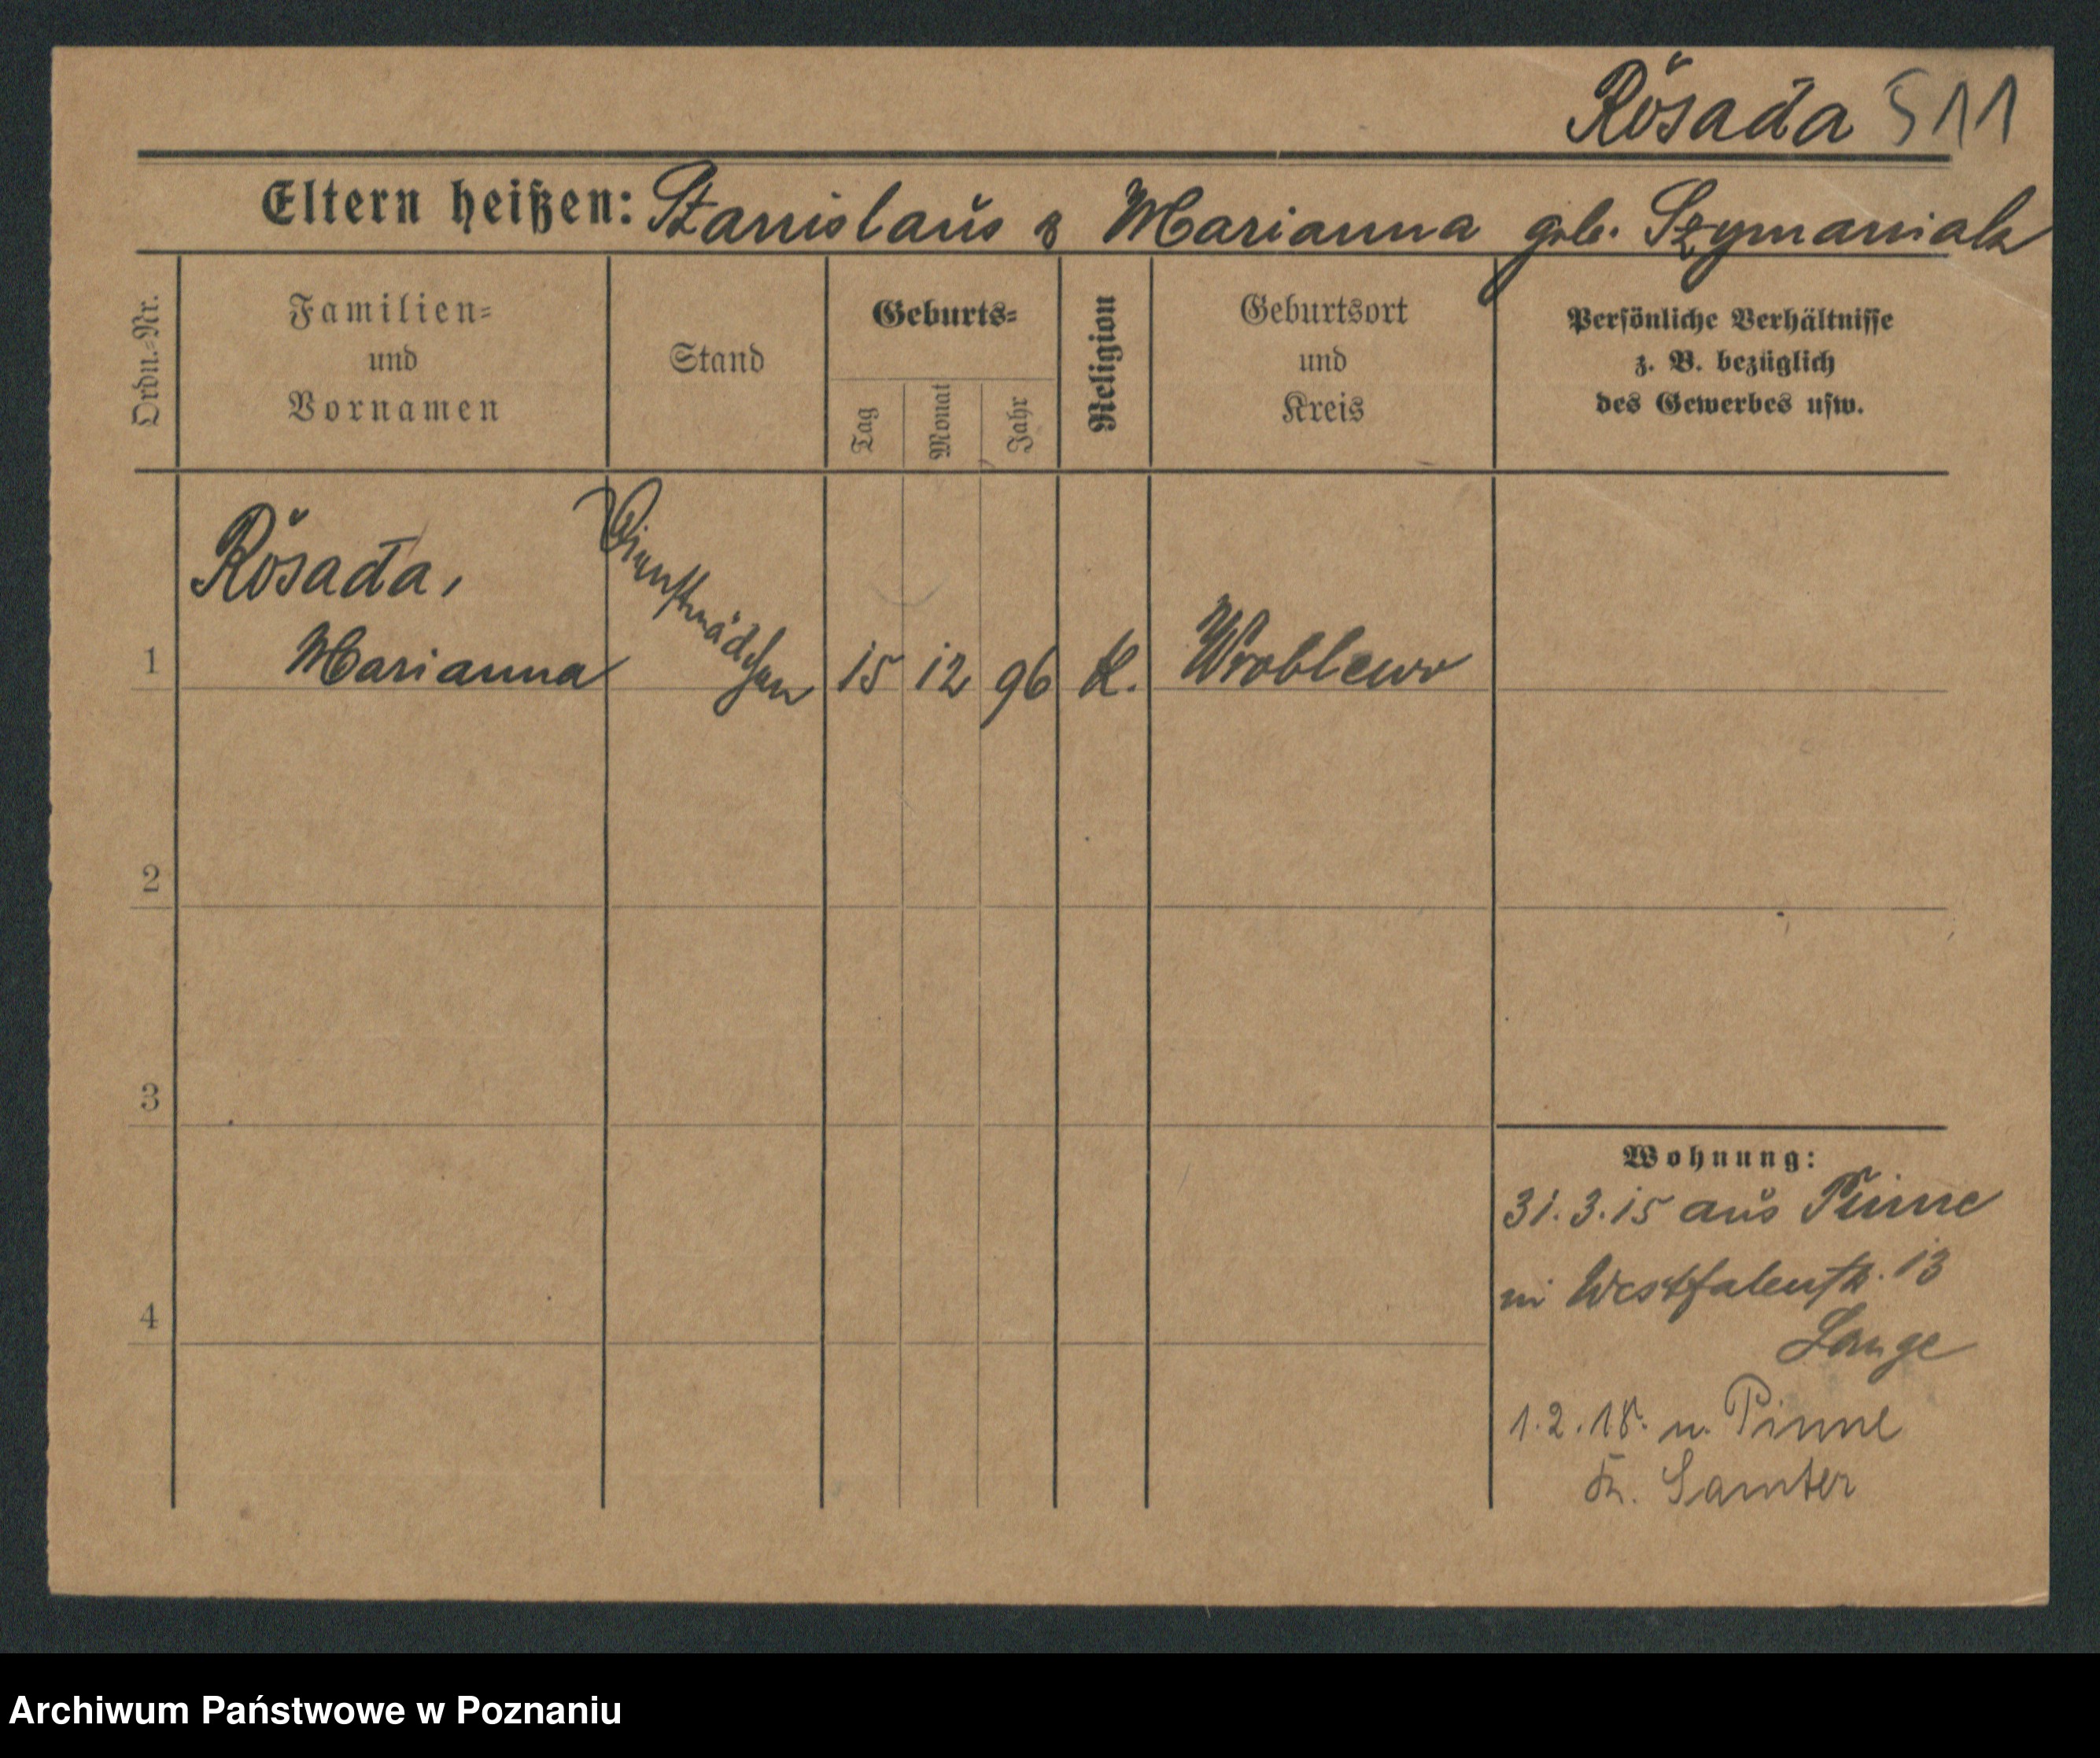 Rósada 511
Eltern heißen: Stanislaus & Marianna geb. Szymaniak
Ordn.-Nr.
Familien-
und
Vornamen
Stand
Geburts-
Tag
Monat
Jahr
Religion
Geburtsort
und
Kreis
Persönliche Verhältnisse
z. B. bezüglich
des Gewerbes usw.
Rósada,
1 Marianna Dienstmädchen 15 12 96 K. Wroblewo
2
3
4
Wohnung:
31.3.15 aus Pinne
in Westfalenstr. 13
Lange
1.2.18. n. Pinne
Kr. Samter
Archiwum Państwowe w Poznaniu